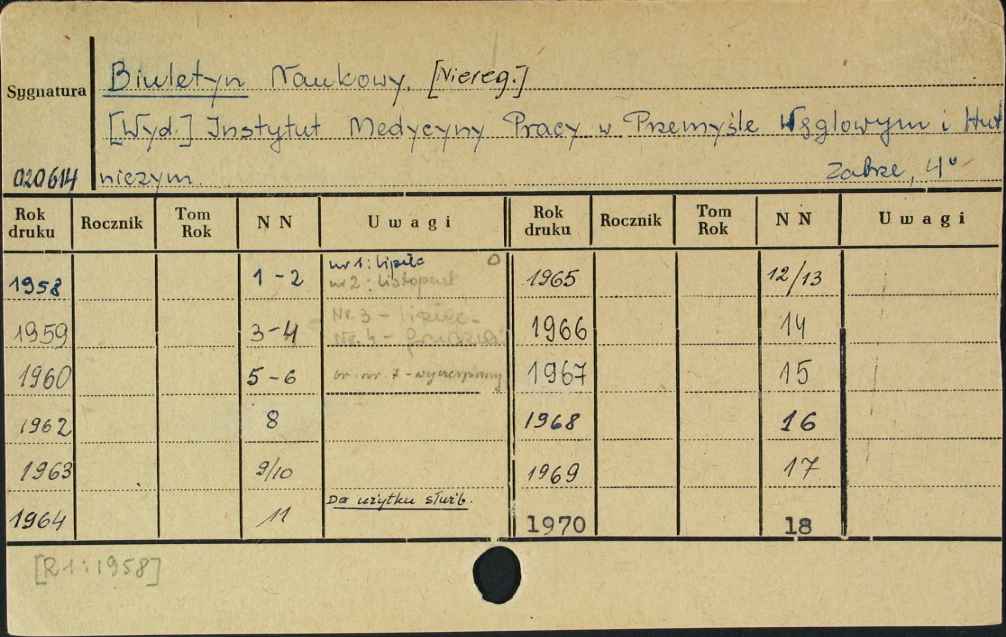 Sygnatura
Biuletyn Naukowy. [Niereg.]
[Wyd.] Instytut Medycyny Pracy w Przemyśle Węglowym i Hut
020614 niczym. Zabrze, 4°
Rok druku Rocznik Tom Rok N N Uwagi Rok druku Rocznik Tom Rok N N Uwagi
1958 1-2 nr 1: lipiec 0 1965 12/13
nr 2: listopad
1959 3-4 Nr. 3 - lipiec - 1966 14
Nr. 4 - grudzień
1960 5-6 br. nr. 7 - wyczerpany 1967 15
1962 8 1968 16
1963 9/10 1969 17
Do użytku służb.
1964 11 1970 18
[R.1:1958]